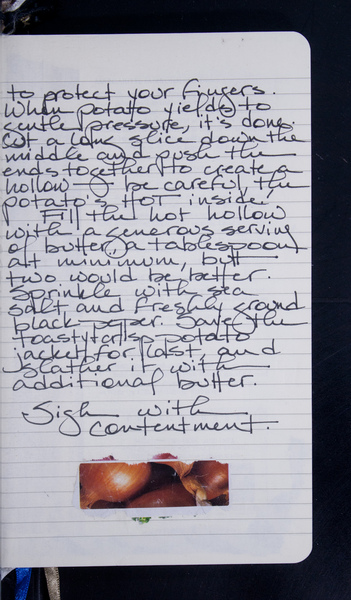 to protect your fingers.
When potato yields to
gentle pressure, it's done.
Cut a long slice down the
middle and push the
ends together to create a
hollow – be careful, the
potato's HOT inside.
Fill the hot hollow
with a generous serving
of butter, a tablespoon
at minimum, but
two would be better.
Sprinkle with sea
salt and freshly ground
black pepper. Save the
toasty crisp potato
jacket for last, and
slather it with
additional butter.
Sigh with
contentment.